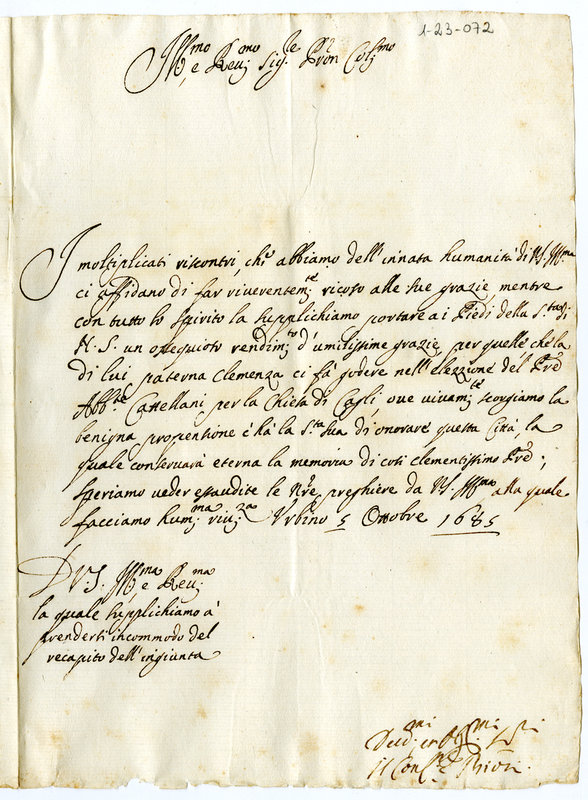 1-23-072
Ill.mo e Rev.mo Sig.re P.ron Col.mo
I moltiplicati riscontri, che abbiamo dell'innata humanità di V.S. Ill.ma
ci affidano di far riverentem.te ricorso alle sue grazie, mentre
con tutto lo spirito la supplichiamo portare ai Piedi della S.tà di
N. S. un ossequioso rendim.to d'umilissime grazie per quelle che la
di lui paterna clemenza ci fà godere nell'elezzione del Pre
Abb.e Castellani per la Chiesa di Cagli, ove vivam.te scorgiamo la
benigna propensione c'hà la S.tà Sua di onorare questa Città la
quale conservarà eterna la memoria di così clementissimo Pre;
speriamo veder esaudite le Nre preghiere da V.S. Ill.ma alla quale
facciamo hum.ma riv.za Urbino 5 Ottobre 1685
D V.S. Ill.ma e Rev.ma
la quale supplichiamo à
prendersi incommodo del
recapito dell'ingiunta
Il Conf.re Priori